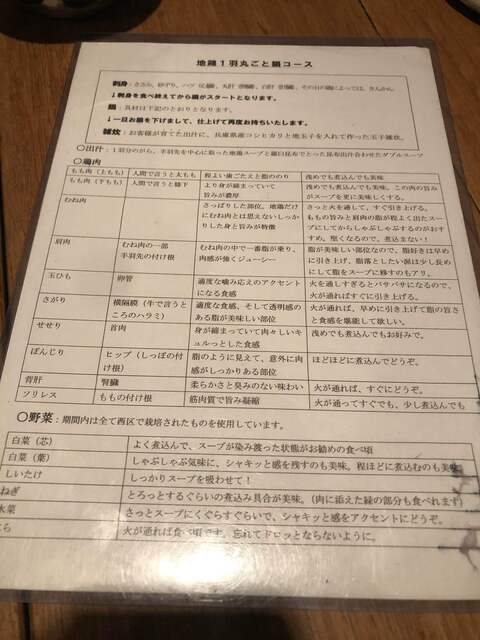 地鶏１羽丸ごと鍋コース
刺身：ささみ、砂ずり、ハツ（心臓）、
↓刺身を食べ終えてから鍋がスタートとなります。
鍋：具材は下記のとおりとなります。
↓一旦お鍋を下げまして、仕上げて再度お持ちいたします。
雑炊：お客様が育てた出汁に、兵庫県産コシヒカリと地玉子を入れて作った玉子雑炊。
〇出汁：１羽分のがら、手羽先を中心に取った地鶏スープと羅臼昆布でとった昆布出汁合わせたダブルスープ
〇鶏肉
もも肉（上もも） 人間で言う太もも 程よい歯ごたえと脂ののり 浅めでも煮込んでも美味
もも肉（下もも） 人間で言う膝下 より身が締まっていて 浅めでも煮込んでも美味。この肉の旨み
旨みが濃厚 がスープを更に美味しくする。
むね肉 さっぱりした部位。地鶏だけ さっと火を通して、すぐ引き上げる。
にむね肉とは思えないしっか ももの旨みと肩肉の脂が程よく出たスー
りした身と旨みが特徴 プにしてからしゃぶしゃぶするのがおす
すめ。堅くなるので、煮込まない！
肩肉 むね肉の一部 むね肉の中で一番脂が乗り、 脂が美味しい部位なので、脂好きは早め
手羽先の付け根 肉感が強くジューシー に引き上げ、脂落としたい派は少し長め
にして脂をスープに移すのもアリ。
玉ひも 卵管 適度な噛み応えのアクセント 火を通しすぎるとパサパサになるので、
になる食感 火が通ればすぐに引き上げる。
さがり 横隔膜（牛で言うと 適度な食感、そして透明感の 火が通れば、早めに引き上げて脂の旨さ
ころのハラミ） ある脂が美味しい部位 と食感を堪能して欲しい。
せせり 首肉 身が締まっていて肉々しいキ 浅めでも煮込んでもお好みで。
ュルっとした食感
ぼんじり ヒップ（しっぽの付 脂のように見えて、意外に肉 ほどほどに煮込んでどうぞ。
け根） 感がしっかりある部位
背肝 腎臓 柔らかさと臭みのない味わい 火が通れば、すぐにどうぞ。
ソリレス ももの付け根 筋肉質で旨み凝縮 火が通ってすぐでも、少し煮込んでも
〇野菜：期間内は全て西区で栽培されたものを使用しています。
白菜（芯） よく煮込んで、スープが染み渡った状態がお勧めの食べ頃
白菜（葉） しゃぶしゃぶ気味に、シャキッと感を残すのも美味。程ほどに煮込むのも美味
しいたけ しっかりスープを吸わせて！
ねぎ とろっとするぐらいの煮込み具合が美味。（肉に添えた緑の部分も食べれます）
水菜 さっとスープにくぐらすぐらいで、シャキッと感をアクセントにどうぞ。
ら 火が通れば食べ頃です。忘れてドロッとならないように。